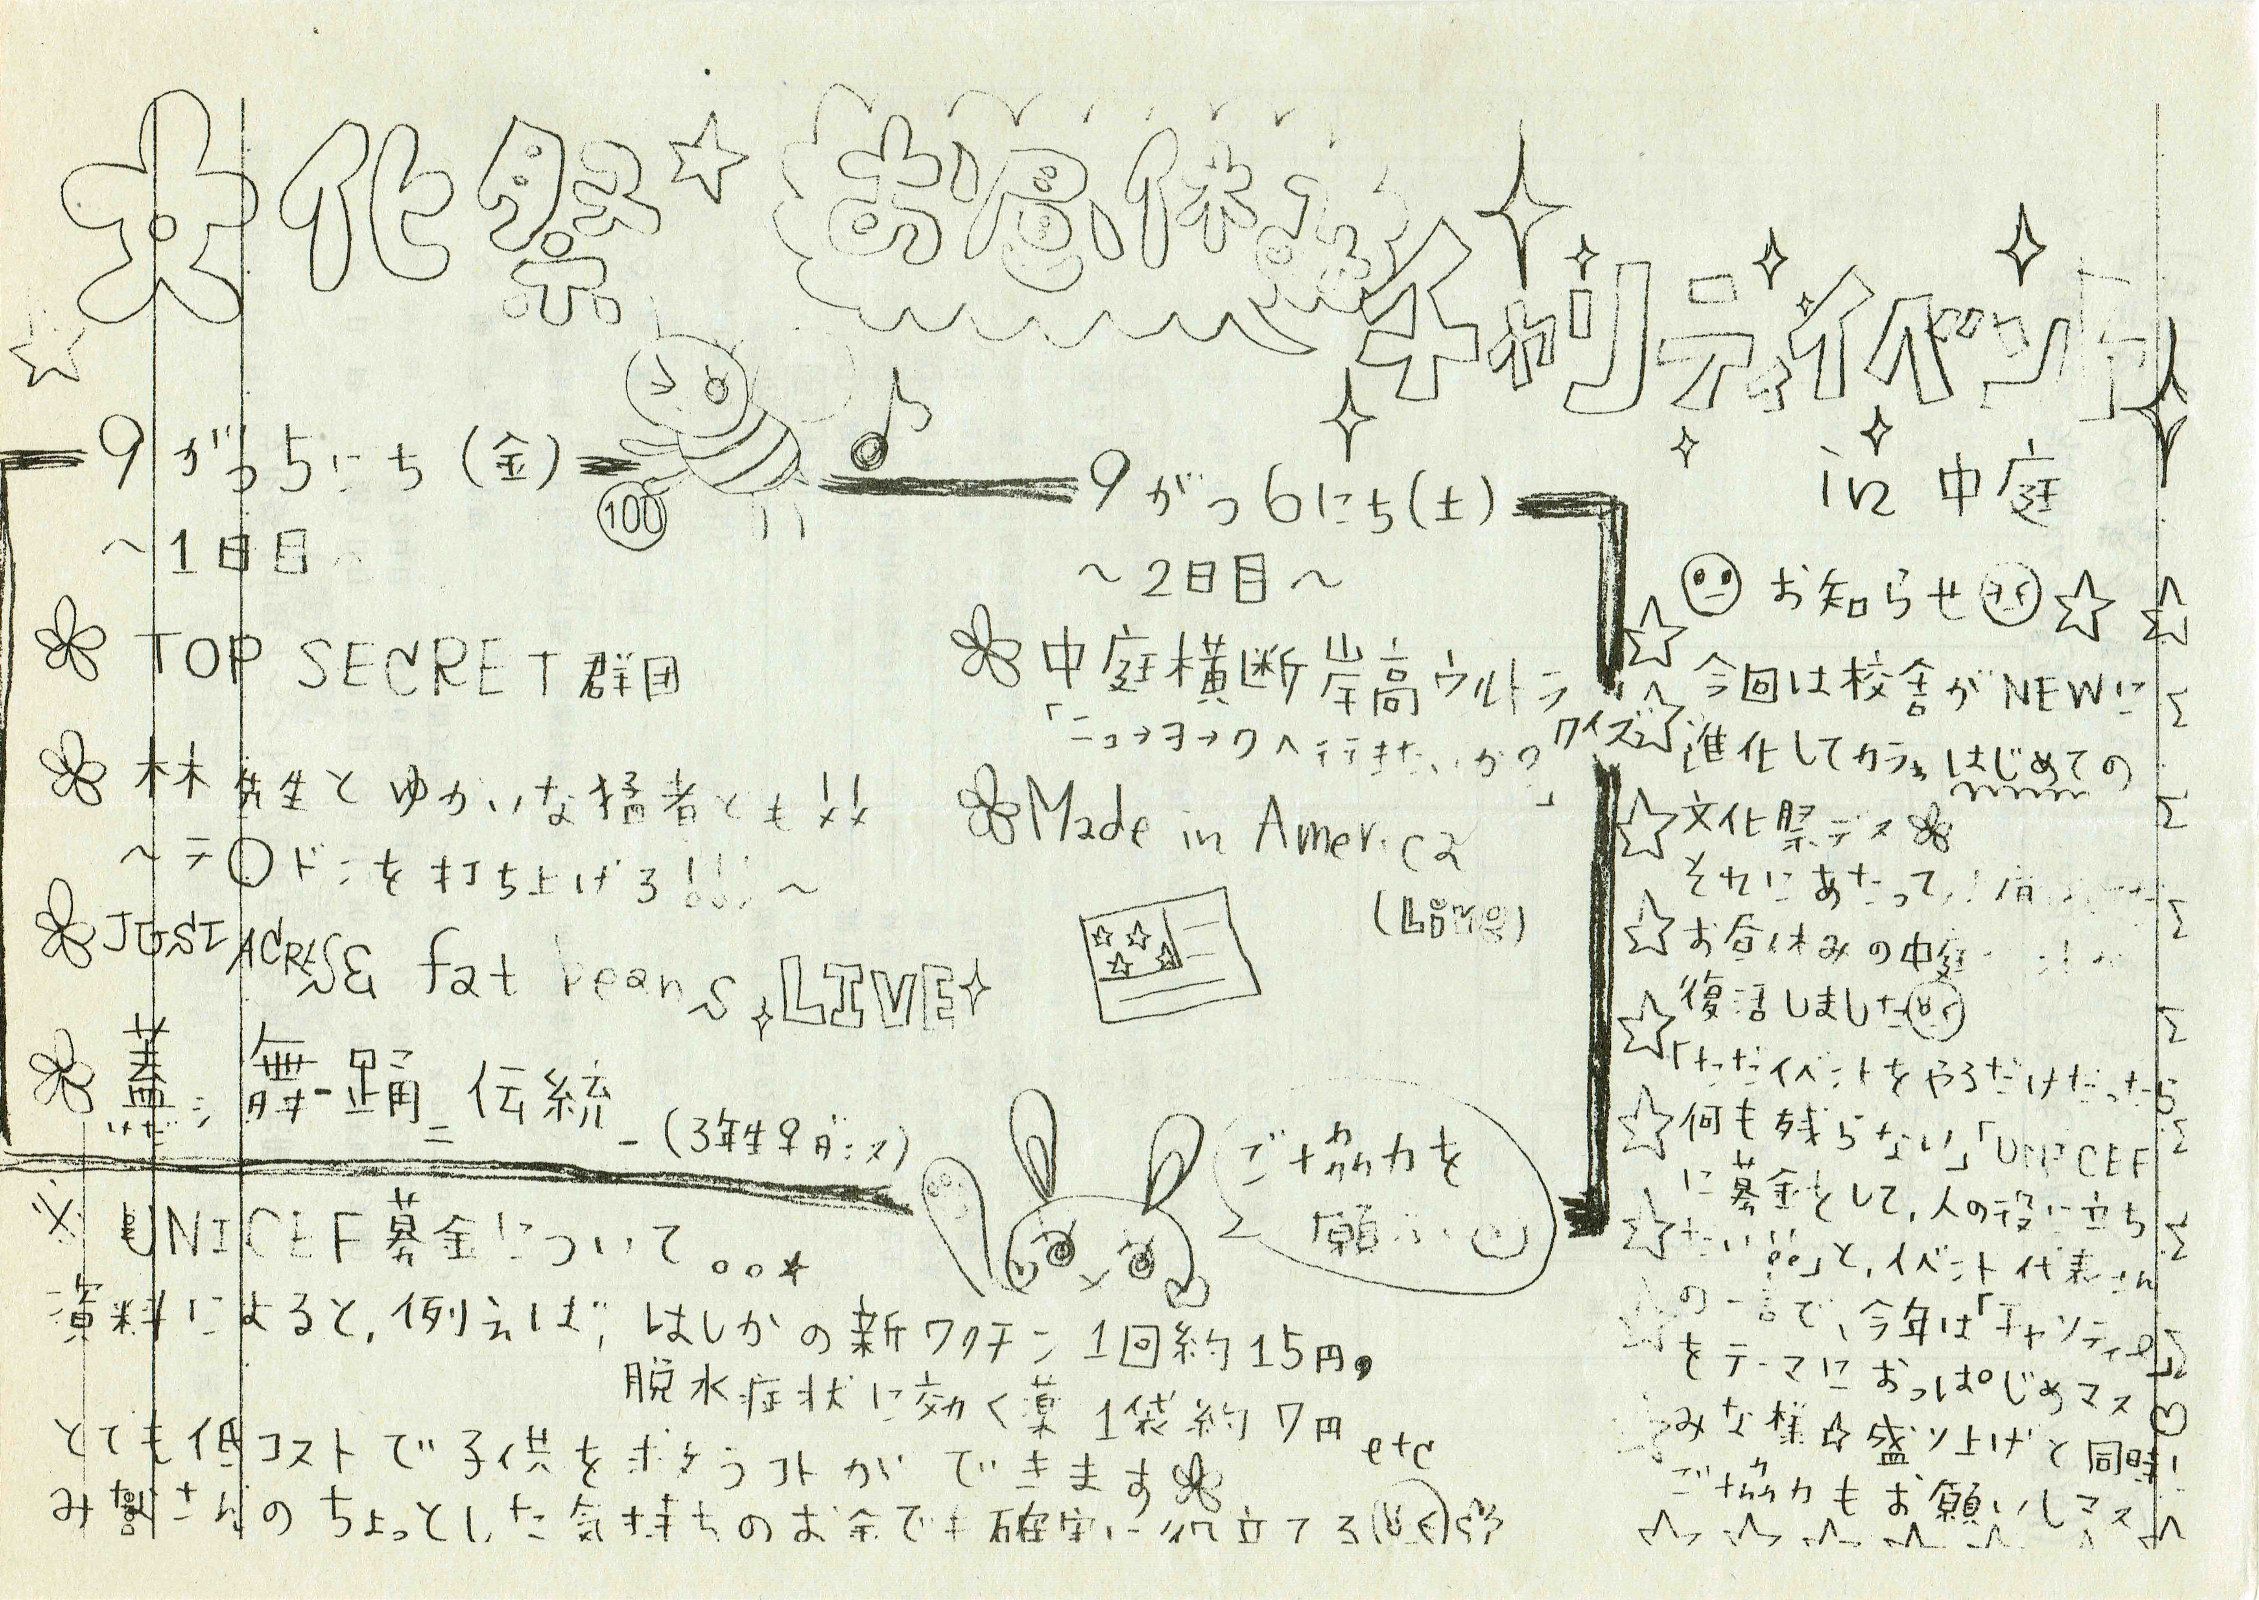 文化祭☆お昼休み
チャリティイベント
in 中庭
9がつ5にち(金)
～1日目～
TOP SECRET 群団
林先生とゆかいな猛者ども!!
～テ〇ドンを打ち上げろ!!!～
JUST ACRES & fat beans LIVE
蓋シ舞踊ニ伝統
けだ
(3年生♀ダンス)
100
9がつ6にち(土)
～2日目～
中庭横断岸高ウルトラ
クイズ
「ニューヨークへ行きたいか?」
Made in America
(Ling)
お知らせ
今回は校舎がNEWに
進化してカラ、はじめての
文化祭デス
それにあたって、
お昼休みの中庭
復活しました
「ただイベントをやるだけだったら
何も残らない」「UNICEF
に募金をして、人の役に立ち
たい!!」と、イベント代表さん
の一言で、今年は「チャリティー」
をテーマにおっぱじめマス
みな様☆盛り上げと同時に
ご協力もお願いしマス
ご協力を
願い
※ UNICEF募金について。。★
資料によると、例えば、はしかの新ワクチン 1回約15円，
脱水症状に効く薬 1袋約7円 etc
とても低コストで子供をすくうコトができます
みなさんのちょっとした気持ちのお金でも確実に役立てる